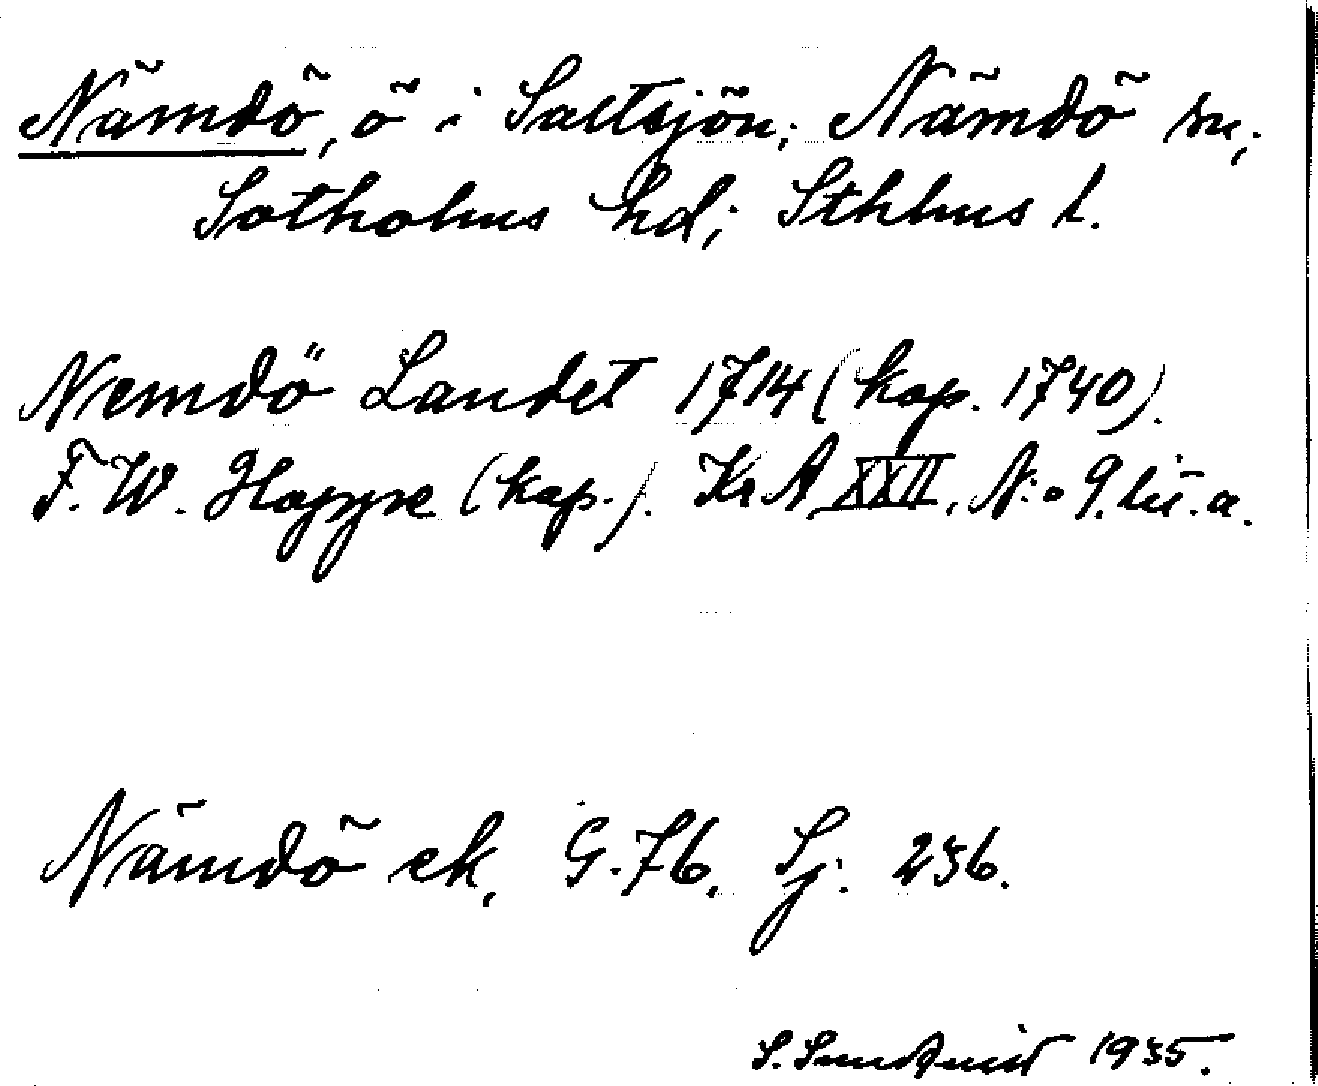 Nämdö, ö i Saltsjön; Nämdö sn;
Sotholms hd; Sthlms l.
Nemdö Landet 1714 (kop. 1740).
F. W. Hoppe (kop.). Kr A XXII, N:o 9. lit. a.
Nämdö ek, G. 76, Sj. 236.
S. 1935.